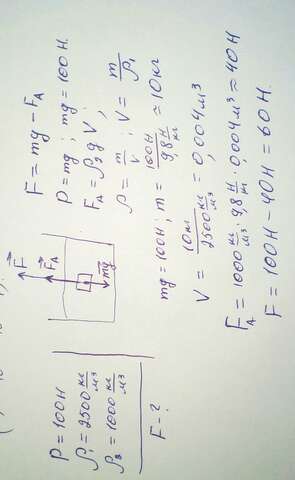 P = 100 Н
ρ₁ = 2500 кг/м³
ρв = 1000 кг/м³
F - ?
F
F_A
mg
F = mg - F_A
P = mg ; mg = 100 Н.
F_A = ρ₂ g V ;
ρ = m/V ; V = m/ρ₁
mg = 100 Н ; m = 100 Н / 9,8 Н/кг ≈ 10 кг
V = 10 кг / 2500 кг/м³ = 0,004 м³
F_A = 1000 кг/м³ · 9,8 Н/кг · 0,004 м³ ≈ 40 Н
F = 100 Н - 40 Н = 60 Н.